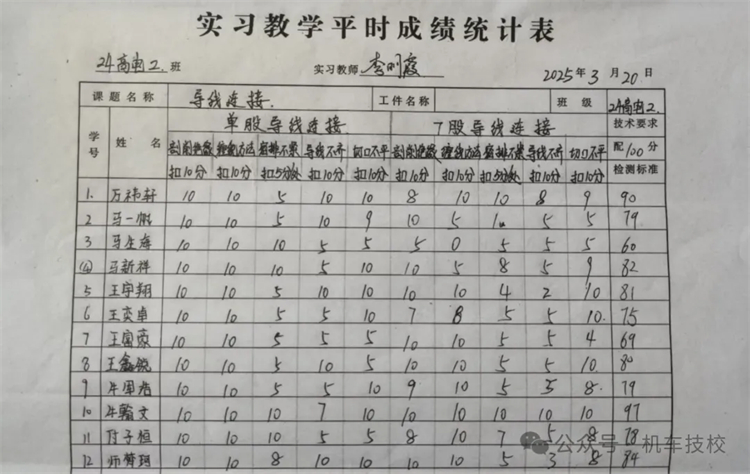 实习教学平时成绩统计表
24高电2. 班 实习教师 李明霞 2025年3月20日
课题名称 导线连接. 工件名称 班级 24高电2.
学号 姓名 单股导线连接 7股导线连接 技术要求
剖削绝缘 缠绕方法 密排不紧 导线不齐 切口不平 剖削绝缘 缠绕方法 密排不紧 导线不齐 切口不平 配100分
扣10分 扣10分 扣5分/处 扣10分 扣10分 扣10分 扣10分 扣5分/处 扣10分 扣10分 检测标准
1. 万祎轩 10 10 5 10 10 8 10 10 8 9 90
2 马一帆 10 10 5 10 9 10 5 10 5 5 79
3 马生海 10 10 10 5 5 5 0 5 5 5 60
④ 马新祥 10 10 10 5 10 10 5 8 5 9 82
5 王宇翔 10 10 5 10 10 10 10 4 2 10 81
6 王奕卓 10 10 5 5 10 7 8 5 5 10. 75
7 王富荣 10 10 5 5 5 10 10 5 5 4 69
8 王鑫锐 10 10 5 10 5 10 10 5 5 10 80
9 牛国浩 10 10 5 5 10 9 10 5 5 8. 79
10 牛翰文 10 10 10 7 10 10 10 10 10 10 97
11 付子恒 10 10 10 5 5 8 10 7 5 8 78
12 师赞 10 10 8 10 10 10 10 5 3 8 84
公众号 机车技校